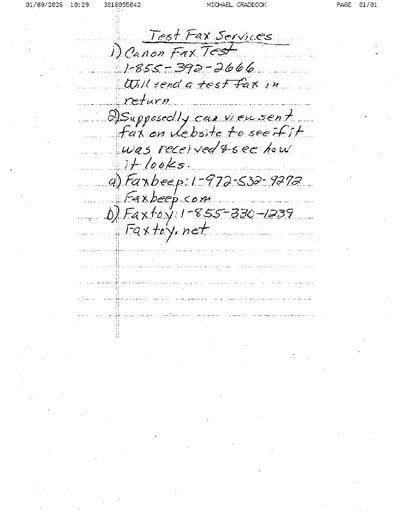 01/09/2026 10:29 3018055042 MICHAEL CRADDOCK PAGE 01/01
Test Fax Services
1) Canon Fax Test
1-855-392-2666
Will send a test fax in
return
2) Supposedly can view sent
fax on website to see if it
was received & see how
it looks.
a) Faxbeep: 1-972-532-9272
Faxbeep.com
b) Faxtoy: 1-855-330-1239
Faxtoy.net